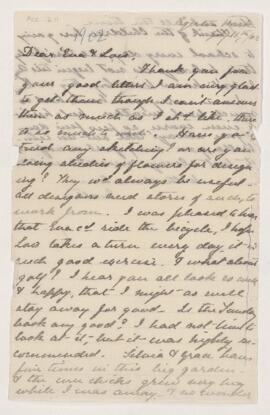 Dear Eva & Lois.
Thank you for
your good letters I am very glad
to get them though I can't answer
them as much as I sh'd like there
is so much to do. Have you
tried any sketching? or are you
doing studies of flowers for design
ing? They wd always be useful.
all designers need stores of such to
work from. I was pleased to hear
that Eva cd ride the bicycle, I hope
Lois takes a turn every day it is
such good exercise. What about
golf? I hear you all look so well
& happy, that I might as well
stay away for good. Is the Sunday
book any good? I had not time to
look at it, but it was highly re-
commended. Silvia & Grace have
fine times in this big garden.
& the wee chicks grew very big
while I was away & no wonder